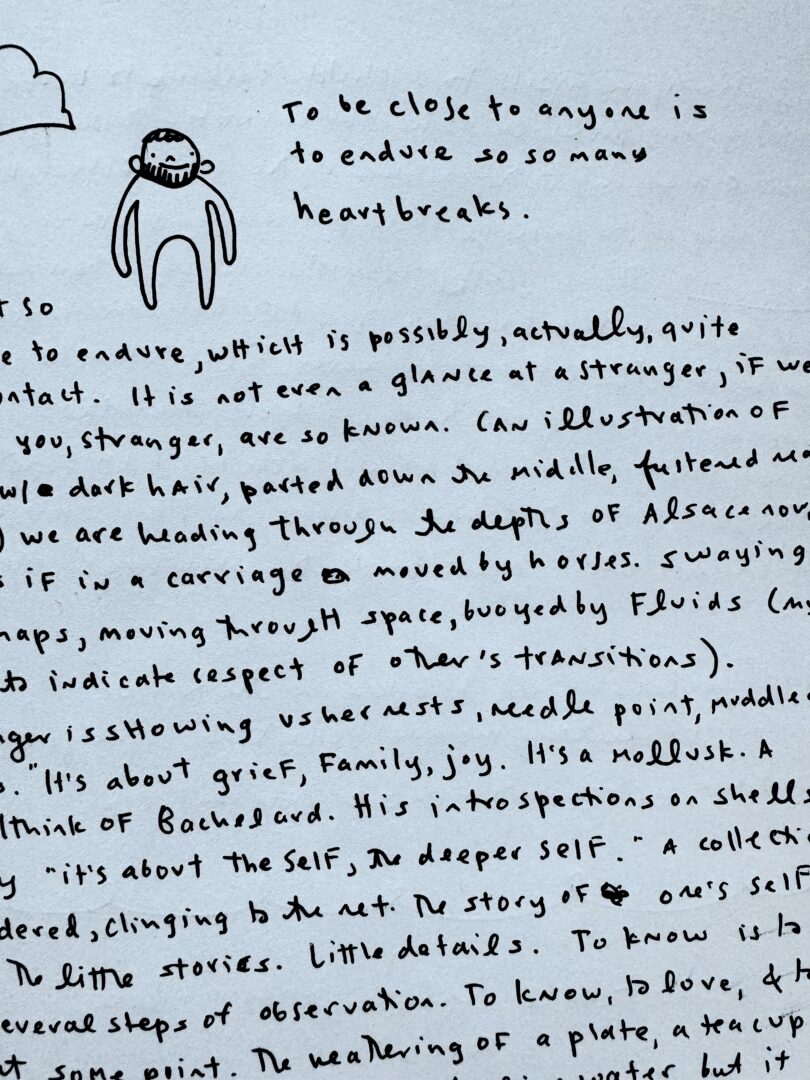 To be close to anyone is
to endure so so many
heartbreaks.
t so
e to endure, which is possibly, actually, quite
ontact. It is not even a glance at a stranger, if we
you, stranger, are so known. (An illustration of
w/ dark hair, parted down the middle, fastened
) we are heading through the depths of Alsace now,
s if in a carriage moved by horses. Swaying
haps, moving through space, buoyed by fluids (my
to indicate respect of other's transitions).
nger is showing us her nests, needle point, muddle
s. "It's about grief, family, joy. It's a mollusk. A
I think of Bachelard. His introspections on shells
y "it's about the self, the deeper self." A collecti
dered, clinging to the net. The story of one's self
The little stories. Little details. To know is to
everal steps of observation. To know, to love, & to
t some point. The weathering of a plate, a teacup
water but it